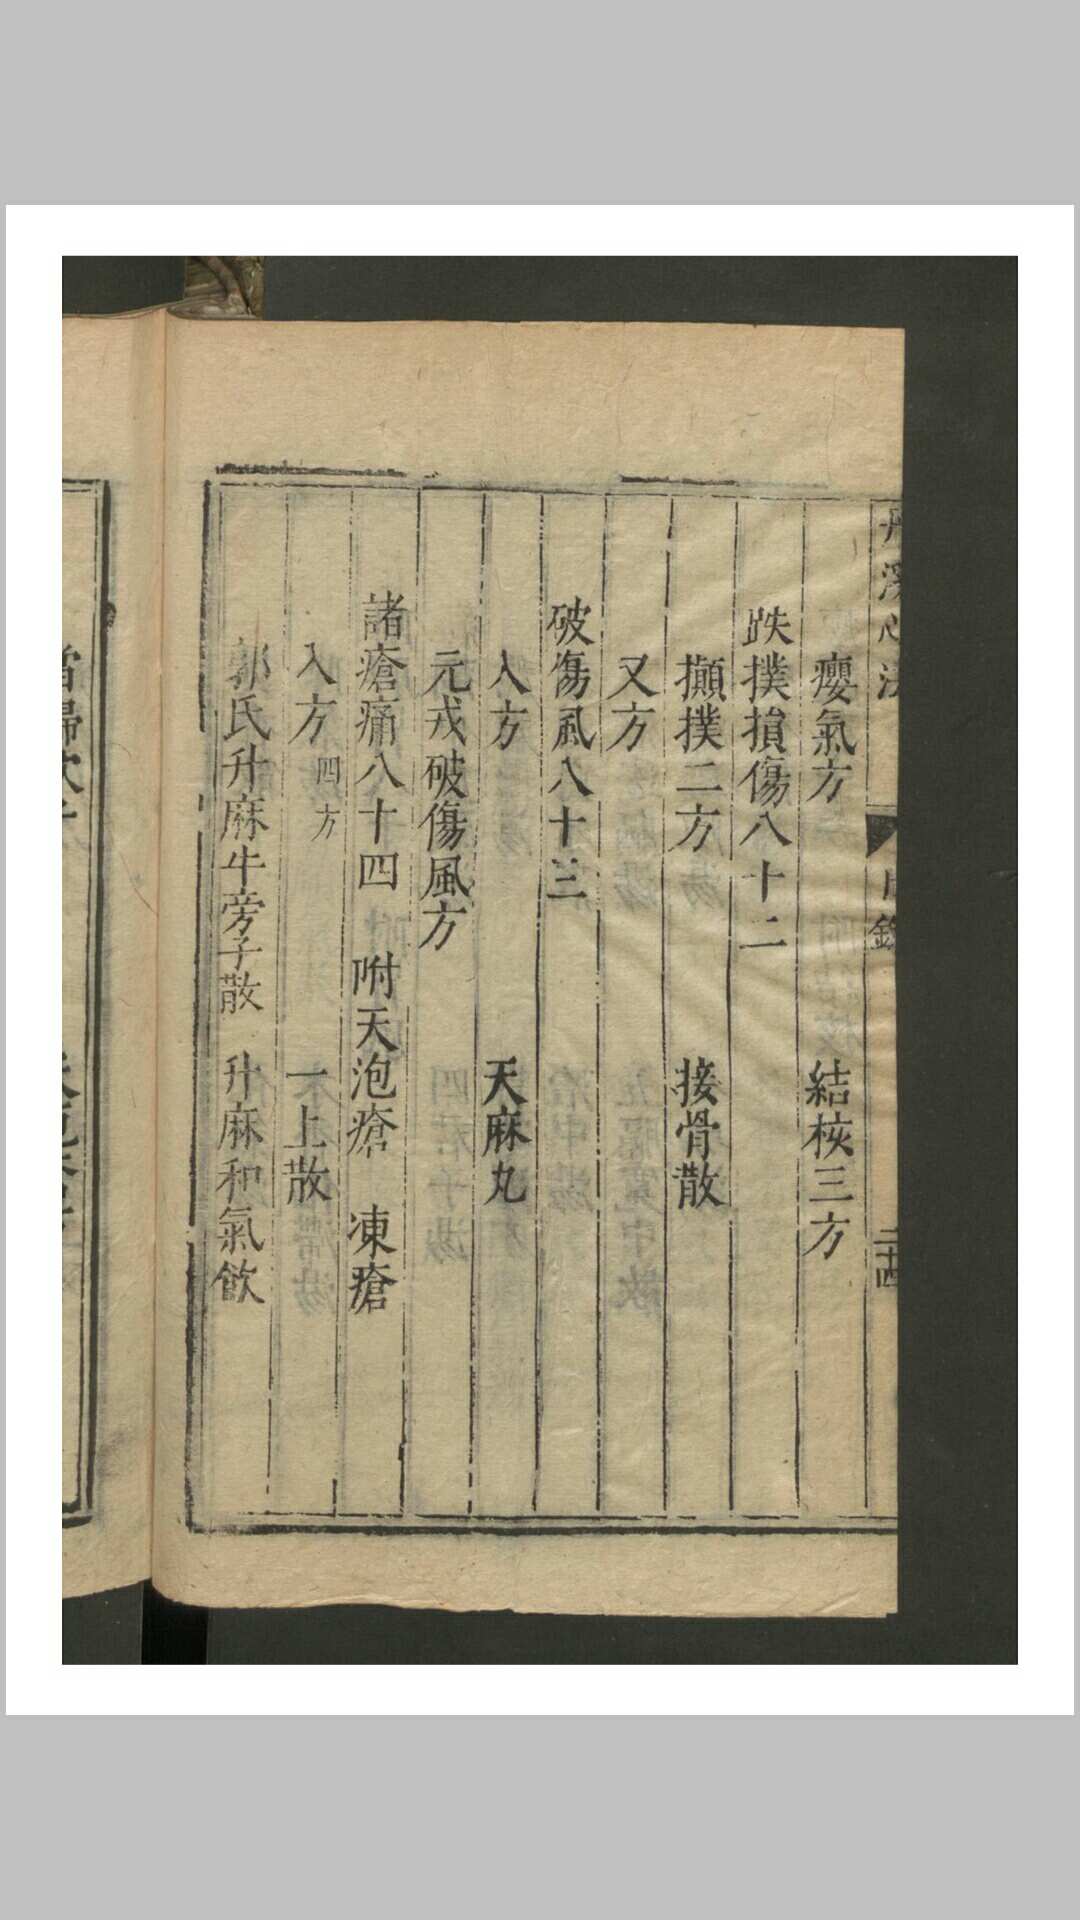 丹溪心法 目錄 二十四
癭氣方 結核三方
跌撲損傷八十二
攧撲二方 接骨散
又方
破傷風八十三
入方 天麻丸
元戎破傷風方
諸瘡痛八十四 附天泡瘡 凍瘡
入方 四方 一上散
郭氏升麻牛旁子散 升麻和氣飲
當歸飲子